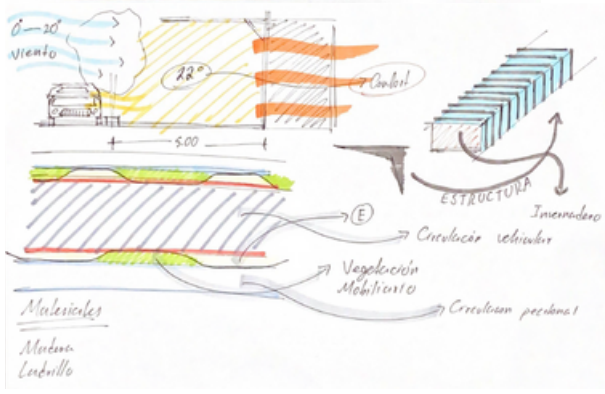 0° — 20°
Viento
22°
Confort
5.00
ESTRUCTURA
Invernadero
E
Circulación vehicular
Vegetación
Mobiliario
Circulacion peatonal
Materiales
Madera
Ladrillo